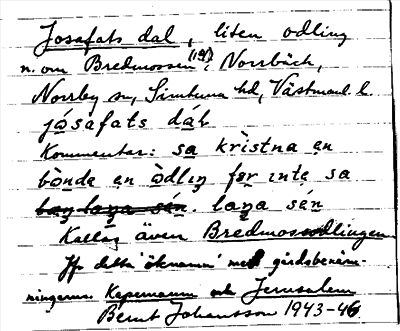 Josafats dal, liten odling
n. om Bredmossen (191) i Norrbäck,
Norrby sn, Simtuna hd, Västmanl. l.
jósafats dáł
Kommentar: sa krìstna ẹn
bònde ẹn òdlıŋ fər ınte sa
laŋa sén
Kallas även Bredmossodlingen
Jfr detta öknamn med gårdsbenäm-
ningarna Kapernaum och Jerusalem
Bernt Johansson 1943-46